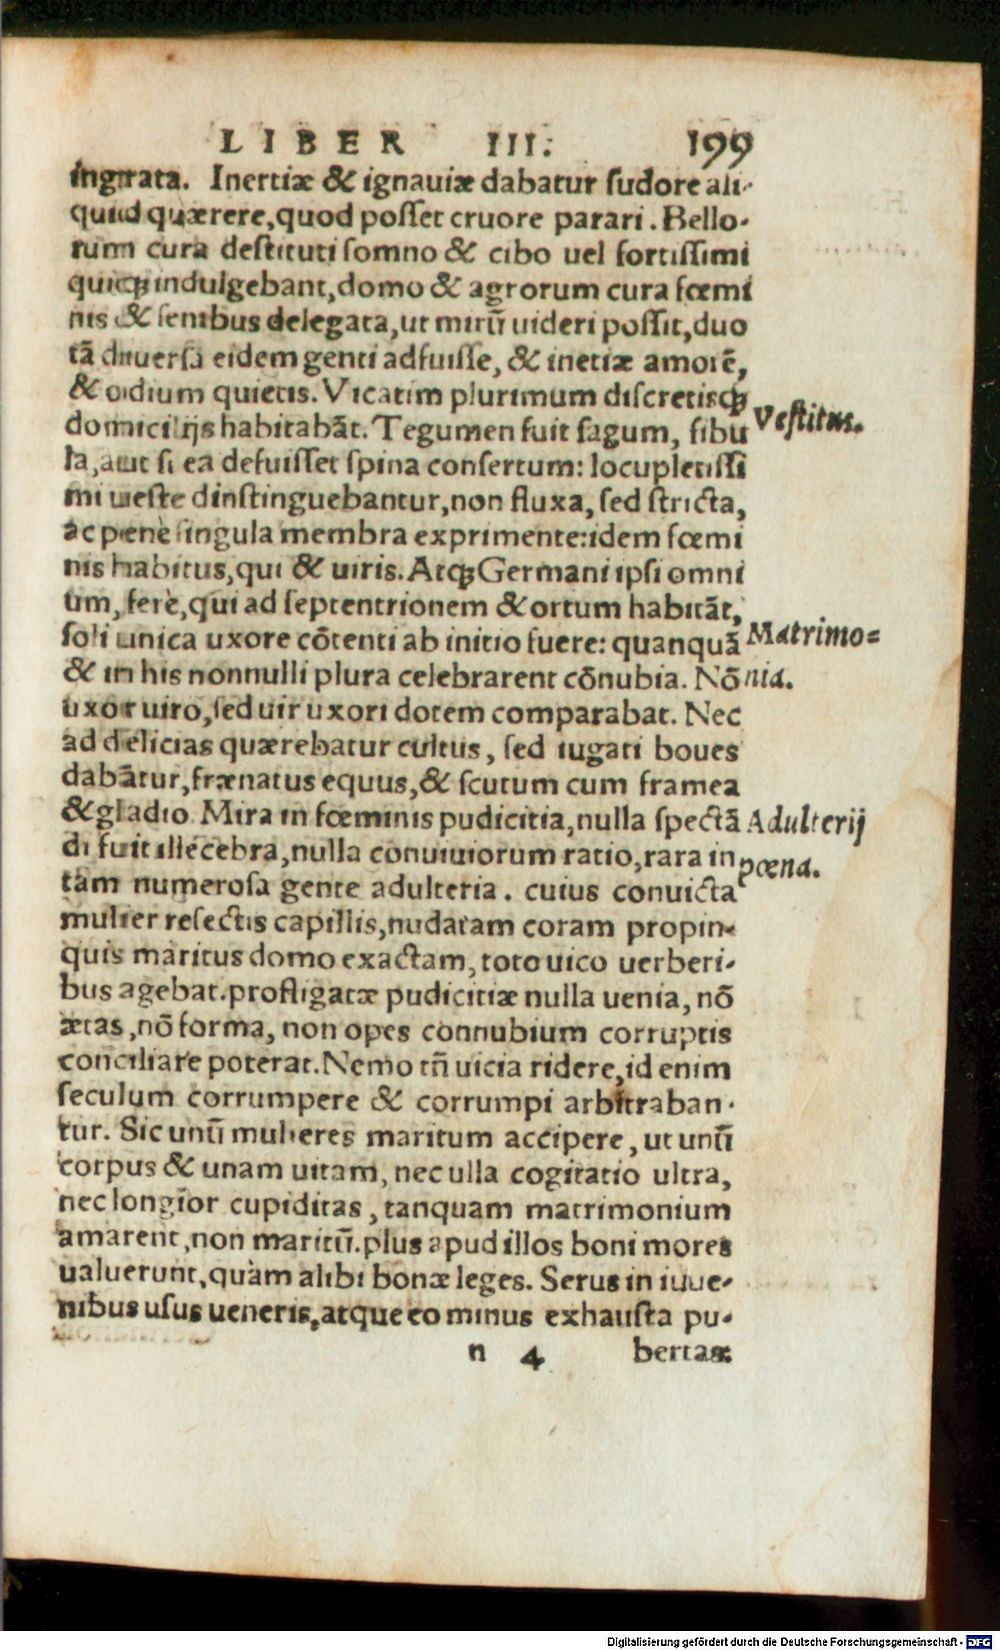 LIBER III. 199
ingrata. Inertiæ & ignauiæ dabatur ſudore ali-
quid quærere, quod poſſet cruore parari. Bello-
rum cura deſtituti ſomno & cibo uel fortiſſimi
quicꝙ indulgebant, domo & agrorum cura fœmi
nis & ſenibus delegata, ut mirũ uideri poſſit, duo
tã diuerſa eidem genti adfuiſſe, & inetiæ amorẽ,
& odium quietis. Vicatim plurimum diſcretiscꝙ
domicilijs habitabãt. Tegumen fuit ſagum, fibu
Veſtitus.
la, aut ſi ea defuiſſet ſpina conſertum: locupletiſſi
mi ueſte dinſtinguebantur, non fluxa, ſed ſtricta,
ac penè ſingula membra exprimente: idem fœmi
nis habitus, qui & uiris. Atcꝙ Germani ipſi omni
um, ferè, qui ad ſeptentrionem & ortum habitãt,
ſoli unica uxore cõtenti ab initio fuere: quanquã
Matrimo=
& in his nonnulli plura celebrarent cõnubia. Nõ
nia.
uxor uiro, ſed uir uxori dotem comparabat. Nec
ad delicias quærebatur cultus, ſed iugati boues
dabãtur, frænatus equus, & ſcutum cum framea
& gladio Mira in fœminis pudicitia, nulla ſpectã
Adulterij
di fuit illecebra, nulla conuiuiorum ratio, rara in
pœna.
tam numeroſa gente adulteria. cuius convicta
mulier reſectis capillis, nudatam coram propin-
quis maritus domo exactam, toto uico uerberi-
bus agebat. profligatæ pudicitiæ nulla uenia, nõ
ætas, nõ forma, non opes connubium corruptis
conciliare poterat. Nemo tñ uicia ridere, id enim
ſeculum corrumpere & corrumpi arbitraban-
tur. Sic unũ mulieres maritum accipere, ut unũ
corpus & unam uitam, nec ulla cogitatio ultra,
nec longior cupiditas, tanquam matrimonium
amarent, non maritũ. plus apud illos boni mores
ualuerunt, quàm alibi bonæ leges. Serus in iuue-
nibus uſus ueneris, atque eo minus exhauſta pu-
n 4 bertas:
Digitalisierung gefördert durch die Deutsche Forschungsgemeinschaft - DFG